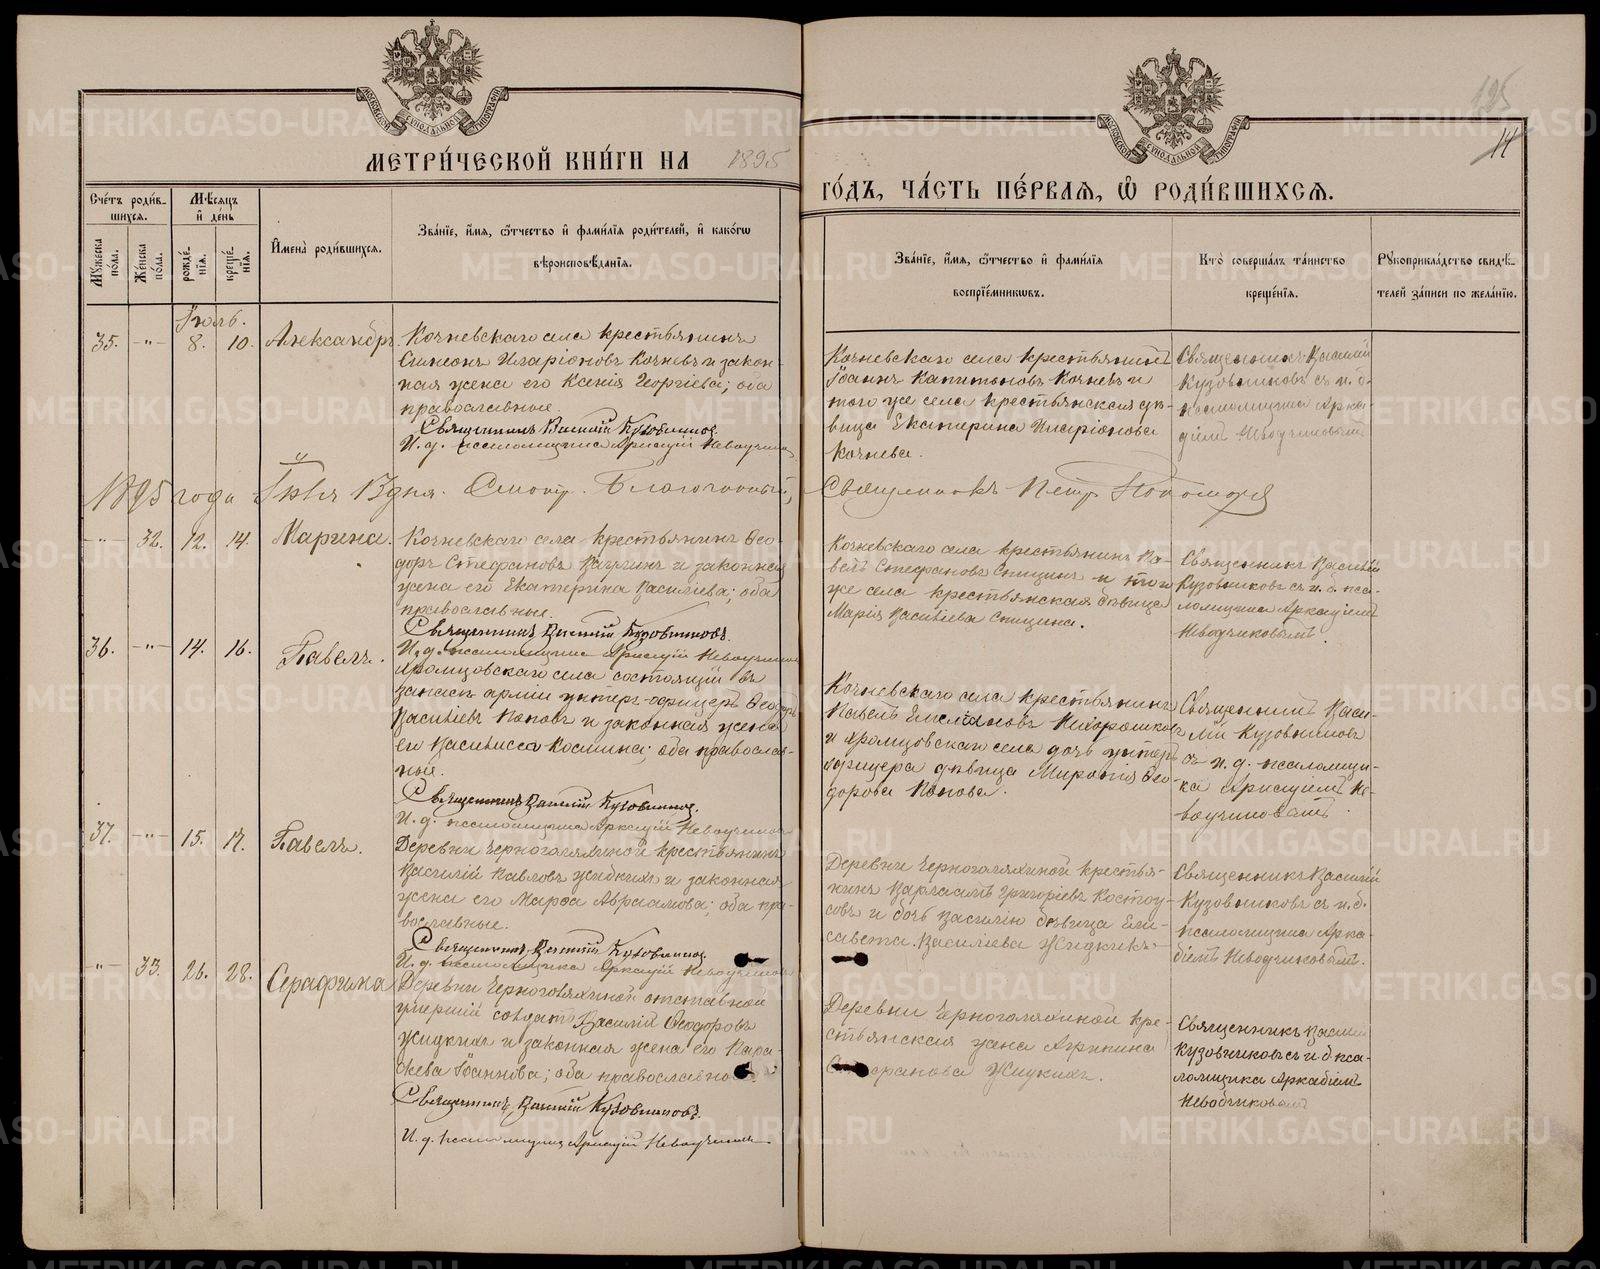 МЕТРИ́ЧЕСКОЙ КНИ́ГИ НА 1895
ГО́ДЪ, ЧА́СТЬ ПЕ́РВАЯ, Ѡ РОДИ́ВШИХСЯ.
125
14
Сче́тъ роди́в-
шихся.
Мꙋ́жеска по́ла.
Же́нска по́ла.
Мѣ́сяцъ
и де́нь
рожде́-
нїя.
креще́-
нїя.
Имена̀ роди́вшихся.
Зва́нїе, и́мя, ѻ́тчество и фами́лїя роди́телей, и како́гѡ
вѣроисповѣ́данїя.
Зва́нїе, и́мя, ѻ́тчество и фами́лїя
воспрїе́мниковъ.
Кто̀ соверша́лъ та́инство
креще́нїя.
Рꙋкоприкла́дство свидѣ́-
телей за́писи по жела́нїю.
Іюль.
35. -"- 8. 10. Александръ
Кочневскаго села крестьянинъ
Симеонъ Иларіоновъ Кочневъ и закон-
ная жена его Ксенія Георгіева; оба
православные.
Священникъ Василій Кузовниковъ.
И. д. псаломщика Аркадій Неводчиков
Кочневскаго села крестьянинъ
Іоаннъ Капитоновъ Кочневъ и
того же села крестьянская дѣ-
вица Екатерина Иларіонова
Кочнева.
Священникъ Василій
Кузовниковъ съ и. д.
псаломщика Арка-
діемъ Неводчиковымъ
1895 года Іюля 13 дня. Смотр. Благочинный,
Священникъ Петр Пономарев
-"- 32. 12. 14. Марина.
Кочневскаго села крестьянинъ Ѳео-
доръ Стефановъ и законная
жена его Екатерина Василіева; оба
православные.
Священникъ Василій Кузовниковъ.
И. д. псаломщика Аркадій Неводчиков
Кочневскаго села крестьянинъ Па-
велъ Стефановъ Спицинъ и того
же села крестьянская дѣвица
Марія Василіева Спицина.
Священникъ Василій
Кузовниковъ съ и. д. пса-
ломщика Аркадіемъ
Неводчиковымъ.
36. -"- 14. 16. Павелъ.
Храмцовскаго села состоящій въ
запасѣ арміи унтеръ-офицеръ Ѳеодоръ
Василіевъ Поповъ и законная жена
его Василисса Космина; оба православ-
ные.
Священникъ Василій Кузовниковъ.
И. д. псаломщика Аркадій Неводчиков
Кочневскаго села крестьянинъ
Павелъ Емеліановъ Нихорошковъ
и Храмцовскаго села дочь унтеръ
офицера дѣвица Миропія Ѳео-
дорова Попова.
Священникъ Васи-
лій Кузовниковъ
съ и. д. псаломщи-
ка Аркадіемъ Не-
водчиковымъ.
37. -"- 15. 17. Павелъ.
Деревни Черноголяхиной крестьянинъ
Василій Павловъ Жидкихъ и законная
жена его Марѳа Авраамова; оба пра-
вославные.
Священникъ Василій Кузовниковъ.
И. д. псаломщика Аркадій Неводчиков
Деревни Черноголяхиной крестья-
нинъ Варлаамъ Григоріевъ Костоу-
совъ и дочь Василію дѣвица Ели-
савета Василіева Жидкихъ
Священникъ Василій
Кузовниковъ съ и. д.
псаломщика Арка-
діемъ Неводчиковымъ.
-"- 33. 26. 28. Серафима
Деревни Черноголяхиной отставной
умершій солдатъ Василій Ѳеодоровъ
Жидкихъ и законная жена его Пара-
скева Іоаннова; оба православно
Священникъ Василій Кузовниковъ.
И. д. псаломщика Аркадій Неводчиков
Деревни Черноголяхиной кре-
стьянская жена Агрипина
Стефанова Жидкихъ.
Священникъ Василій
Кузовниковъ съ и д пса-
ломщика Аркадіемъ
Неводчиковымъ
METRIKI.GASO-URAL.RU